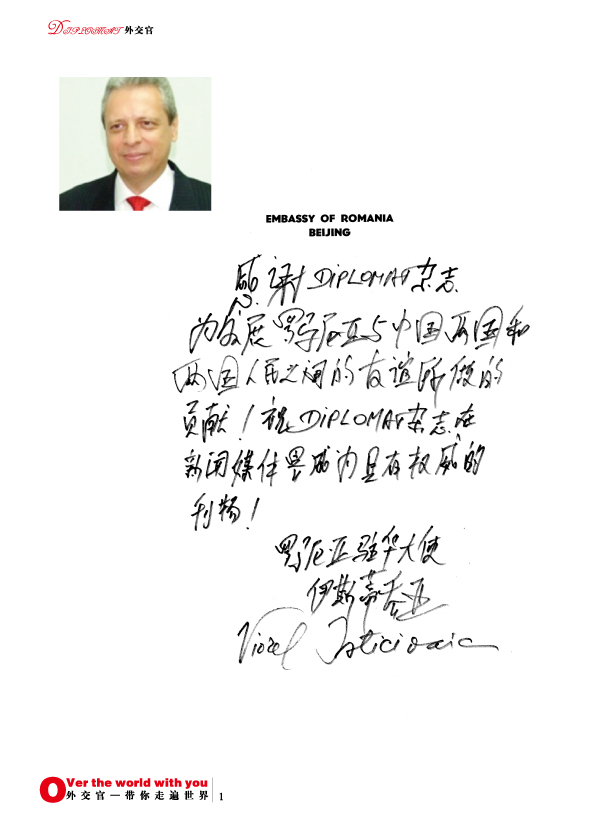 DIPLOMAT 外交官
EMBASSY OF ROMANIA
BEIJING
感谢 DIPLOMAT 杂志
为发展罗马尼亚与中国两国和
两国人民之间的友谊所做的
贡献！祝 DIPLOMAT 杂志在
新闻媒体界成为具有权威的
刊物！
罗尼亚驻华大使
伊斯蒂乔亚
Viorel Isticioaia
OVer the world with you
外交官一带你走遍世界 1